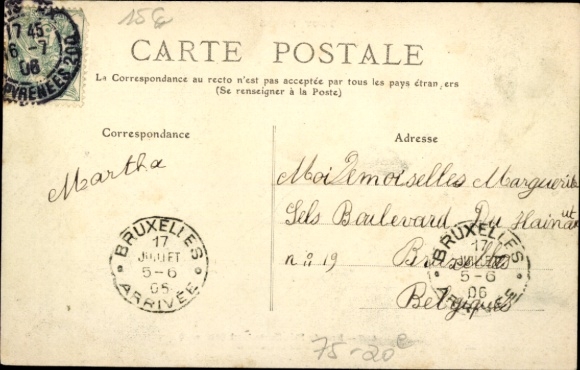 15e
17 45
16 -7
06
PYRENEES 200
CARTE POSTALE
La Correspondance au recto n'est pas acceptée par tous les pays étrangers
(Se renseigner à la Poste)
Correspondance
Adresse
Martha
Moidemoiselles Marguerite
Sels Boulevard Du Hainaut
n° 19 Bruxelles
Belgiques
BRUXELLES
17
JUILLET
5-6
06
ARRIVÉE
BRUXELLES
17
JUILLET
5-6
06
ARRIVÉE
75-20e